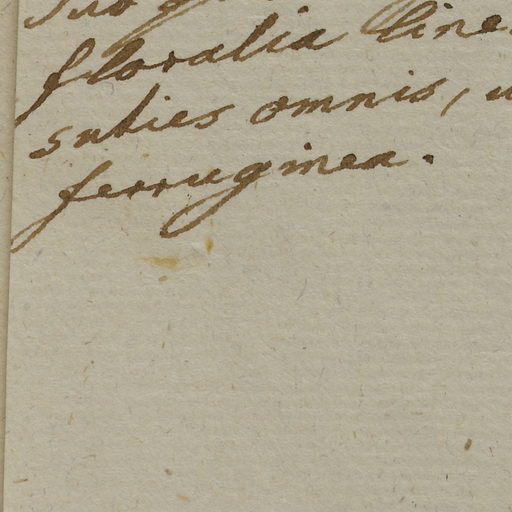 sub
floralia line
subies omnis, u
ferruginea.